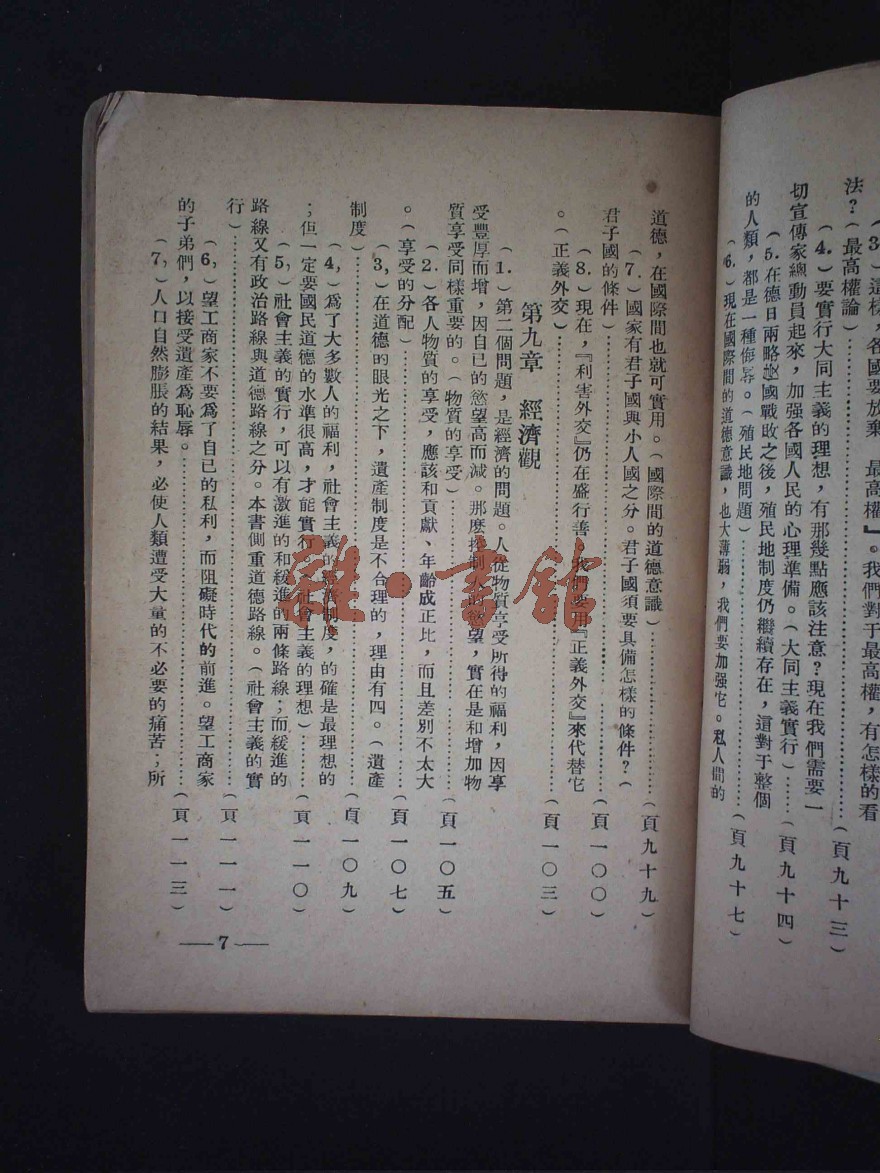 (3.)這樣,各國要放棄『最高權』。我們對于最高權,有怎樣的看
法?(最高權論)……(頁九十三)
(4.)要實行大同主義的理想,有那幾點應該注意?現在我們需要一
切宣傳家總動員起來,加强各國人民的心理準備。(大同主義實行)……(頁九十四)
(5.在德日兩略國戰敗之後,殖民地制度仍繼續存在,這對于整個
的人類,都是一種侮辱。(殖民地問題)……(頁九十七)
(6.)現在國際間的道德意識,也大薄弱,我們要加强它。私人間的
道德,在國際間也就可實用。(國際間的道德意識)……(頁九十九)
(7.)國家有君子國與小人國之分。君子國須要具備怎樣的條件?(
君子國的條件)……(頁一〇〇)
(8.)現在,『利害外交』仍在盛行善,我們要用『正義外交』來代替它
。(正義外交)……(頁一〇三)
第九章 經濟觀
(1.)第二個問題,是經濟的問題。人從物質享受所得的福利,因享
受豐厚而增,因自已的慾望高而減。那麽控制人的慾望,實在是和增加物
質享受同樣重要的。(物質的享受)……(頁一〇五)
(2.)各人物質的享受,應該和貢獻、年齡成正比,而且差別不太大
。(享受的分配)……(頁一〇七)
(3,)在道德的眼光之下,遺產制度是不合理的,理由有四。(遺產
制度)……(頁一〇九)
(4,)爲了大多數人的福利,社會主義的經濟制度,的確是最理想的
;但一定要國民道德的水準很高,才能實行。(社會主義的理想)……(頁一一〇)
(5,)社會主義的實行,可以有激進的和緩進的兩條路線;而緩進的
路線又有政治路線與道德路線之分。本書側重道德路線。(社會主義的實
行)……(頁一一一)
(6,)望工商家不要爲了自已的私利,而阻礙時代的前進。望工商家
的子弟們,以接受遺產爲恥辱。……(頁一一三)
(7,)人口自然膨脹的結果,必使人類遭受大量的不必要的痛苦;所
—7—
雜·書館